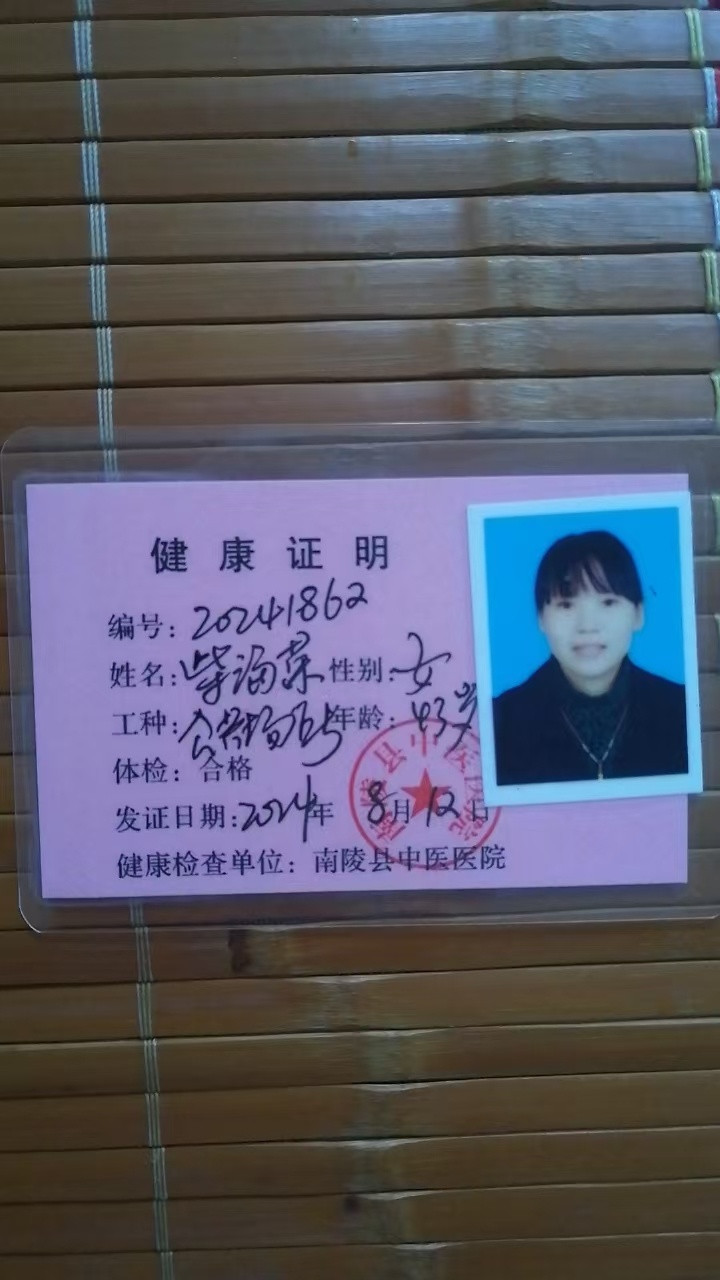 健康证明
编号：20241862
姓名：柴海荣 性别：女
工种：公共场所 年龄：43岁
体检：合格
发证日期：2024年8月12日
健康检查单位：南陵县中医医院
南陵县中医医院